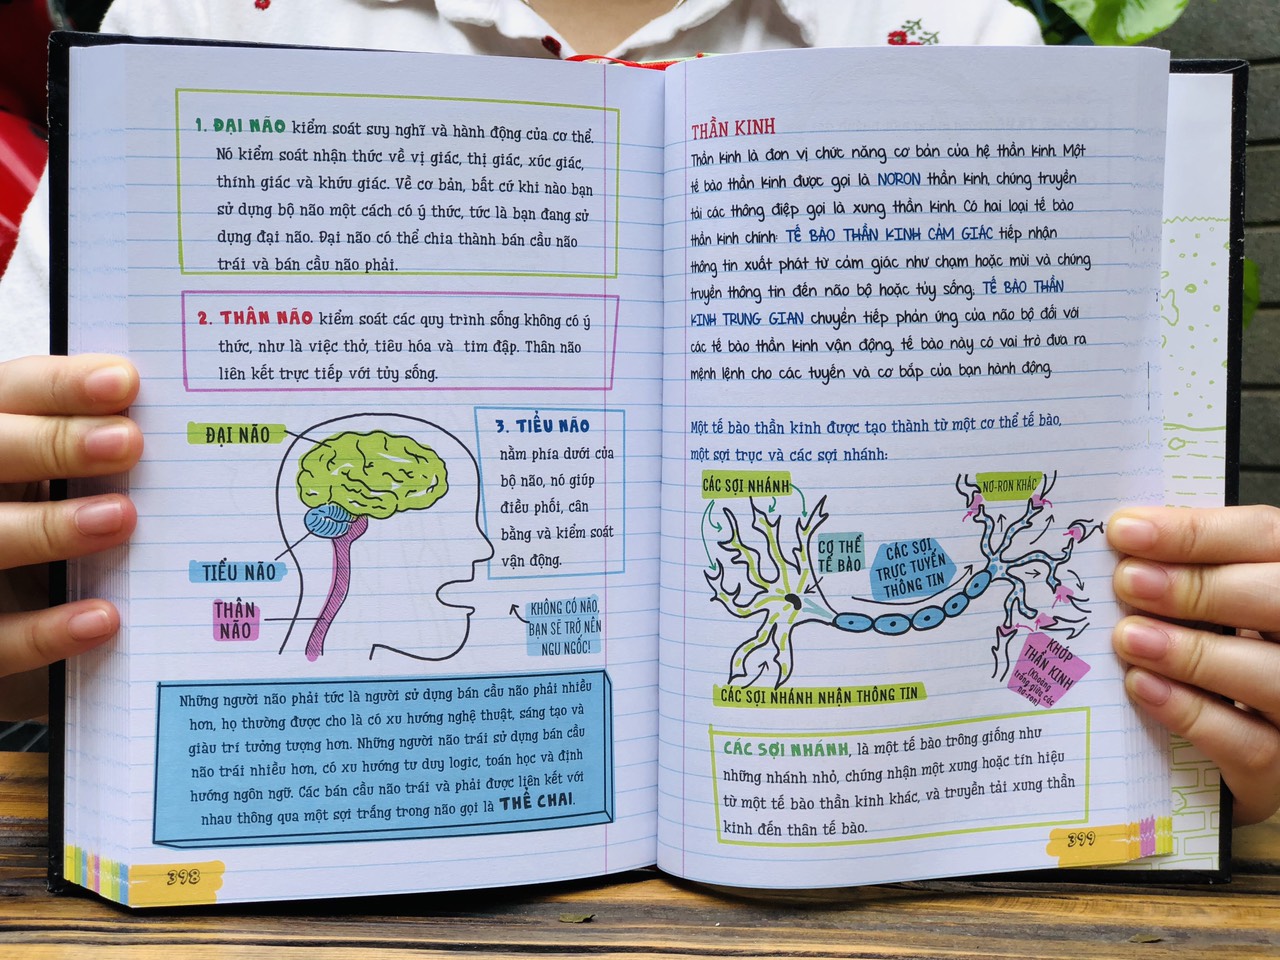 1. ĐẠI NÃO kiểm soát suy nghĩ và hành động của cơ thể.
Nó kiểm soát nhận thức về vị giác, thị giác, xúc giác,
thính giác và khứu giác. Về cơ bản, bất cứ khi nào bạn
sử dụng bộ não một cách có ý thức, tức là bạn đang sử
dụng đại não. Đại não có thể chia thành bán cầu não
trái và bán cầu não phải.
2. THÂN NÃO kiểm soát các quy trình sống không có ý
thức, như là việc thở, tiêu hóa và tim đập. Thân não
liên kết trực tiếp với tủy sống.
ĐẠI NÃO
TIỂU NÃO
THÂN
NÃO
3. TIỂU NÃO
nằm phía dưới của
bộ não, nó giúp
điều phối, cân
bằng và kiểm soát
vận động.
KHÔNG CÓ NÃO,
BẠN SẼ TRỞ NÊN
NGU NGỐC!
Những người não phải tức là người sử dụng bán cầu não phải nhiều
hơn, họ thường được cho là có xu hướng nghệ thuật, sáng tạo và
giàu trí tưởng tượng hơn. Những người não trái sử dụng bán cầu
não trái nhiều hơn, có xu hướng tư duy logic, toán học và định
hướng ngôn ngữ. Các bán cầu não trái và phải được liên kết với
nhau thông qua một sợi trắng trong não gọi là THỂ CHAI.
398
THẦN KINH
Thần kinh là đơn vị chức năng cơ bản của hệ thần kinh. Một
tế bào thần kinh được gọi là NORON thần kinh, chúng truyền
tải các thông điệp gọi là xung thần kinh. Có hai loại tế bào
thần kinh chính: TẾ BÀO THẦN KINH CẢM GIÁC tiếp nhận
thông tin xuất phát từ cảm giác như chạm hoặc mùi và chúng
truyền thông tin đến não bộ hoặc tủy sống. TẾ BÀO THẦN
KINH TRUNG GIAN chuyển tiếp phản ứng của não bộ đối với
các tế bào thần kinh vận động, tế bào này có vai trò đưa ra
mệnh lệnh cho các tuyến và cơ bắp của bạn hành động.
Một tế bào thần kinh được tạo thành từ một cơ thể tế bào,
một sợi trục và các sợi nhánh:
CÁC SỢI NHÁNH
CƠ THỂ
TẾ BÀO
CÁC SỢI
TRỤC TUYẾN
THÔNG TIN
NƠ-RON KHÁC
KHỚP
THẦN KINH
(Khoảng
trống giữa các
nơ-ron)
CÁC SỢI NHÁNH NHẬN THÔNG TIN
CÁC SỢI NHÁNH, là một tế bào trông giống như
những nhánh nhỏ, chúng nhận một xung hoặc tín hiệu
từ một tế bào thần kinh khác, và truyền tải xung thần
kinh đến thân tế bào.
399